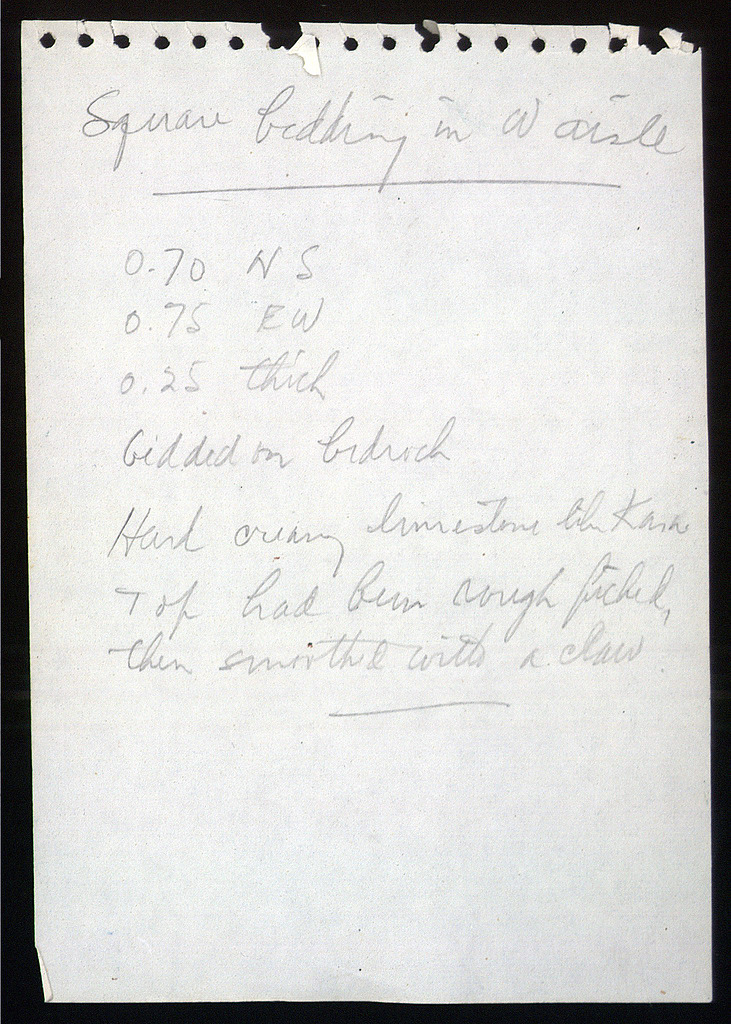 Square bedding in W aisle
0.70 NS
0.75 EW
0.25 thick
bedded on bedrock
Hard creamy limestone like Kara
Top had been rough picked,
then smoothed with a claw.